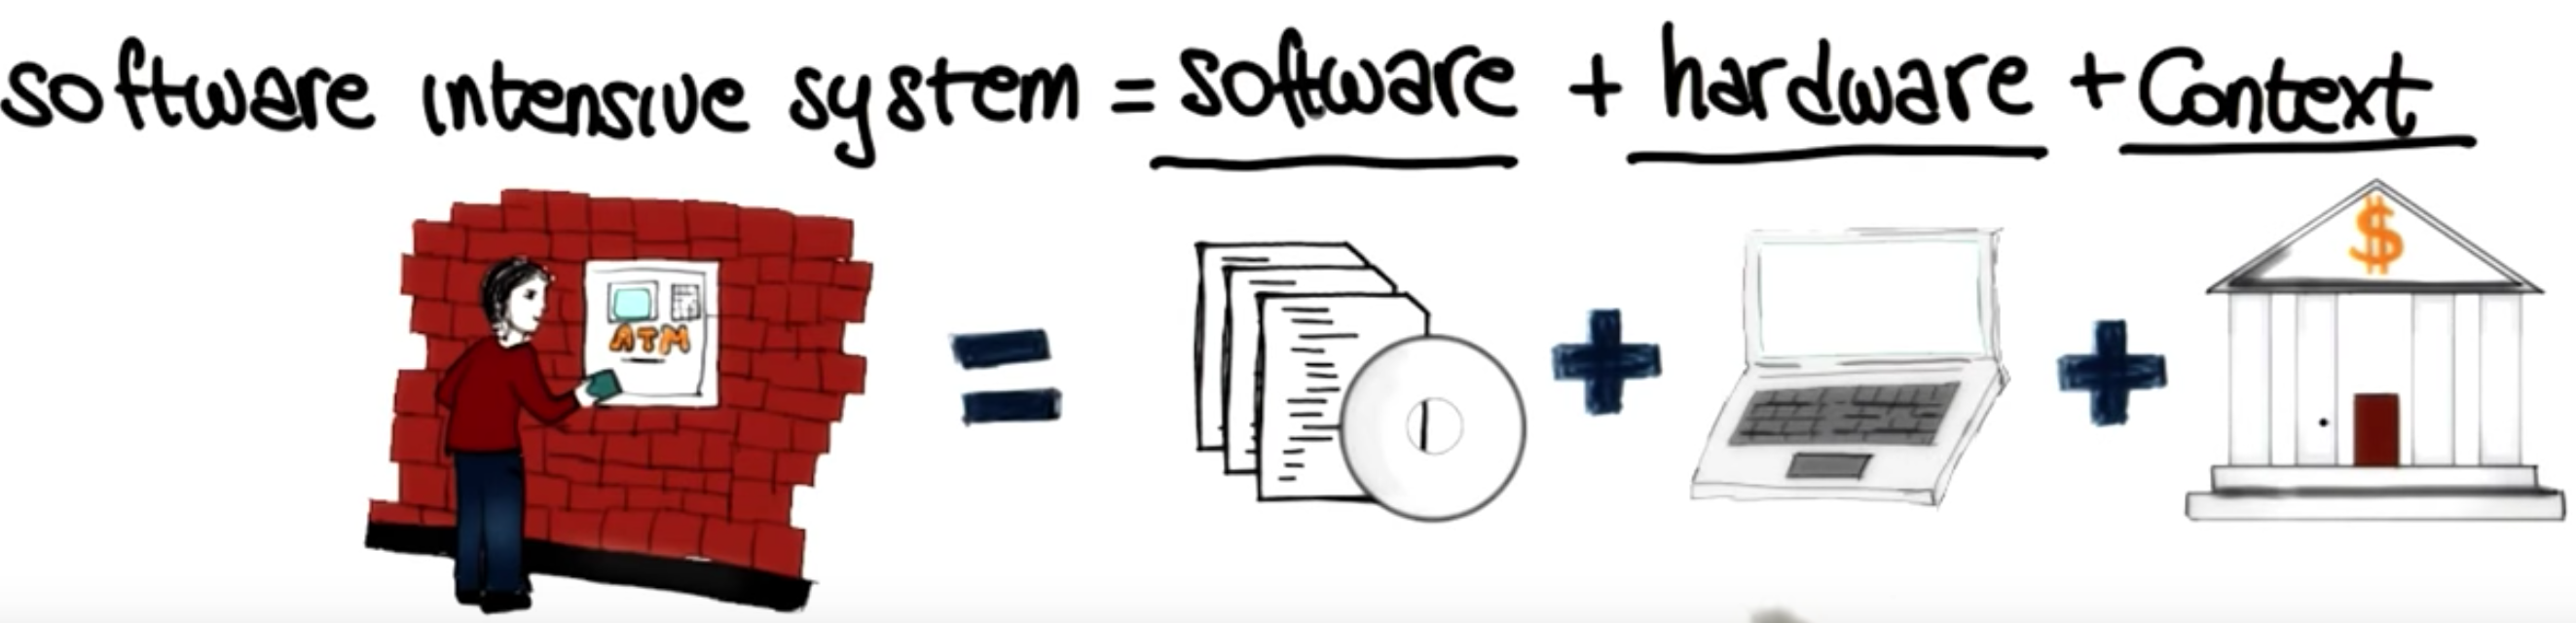 software intensive system = software + hardware + Context
ATM
= + +
$